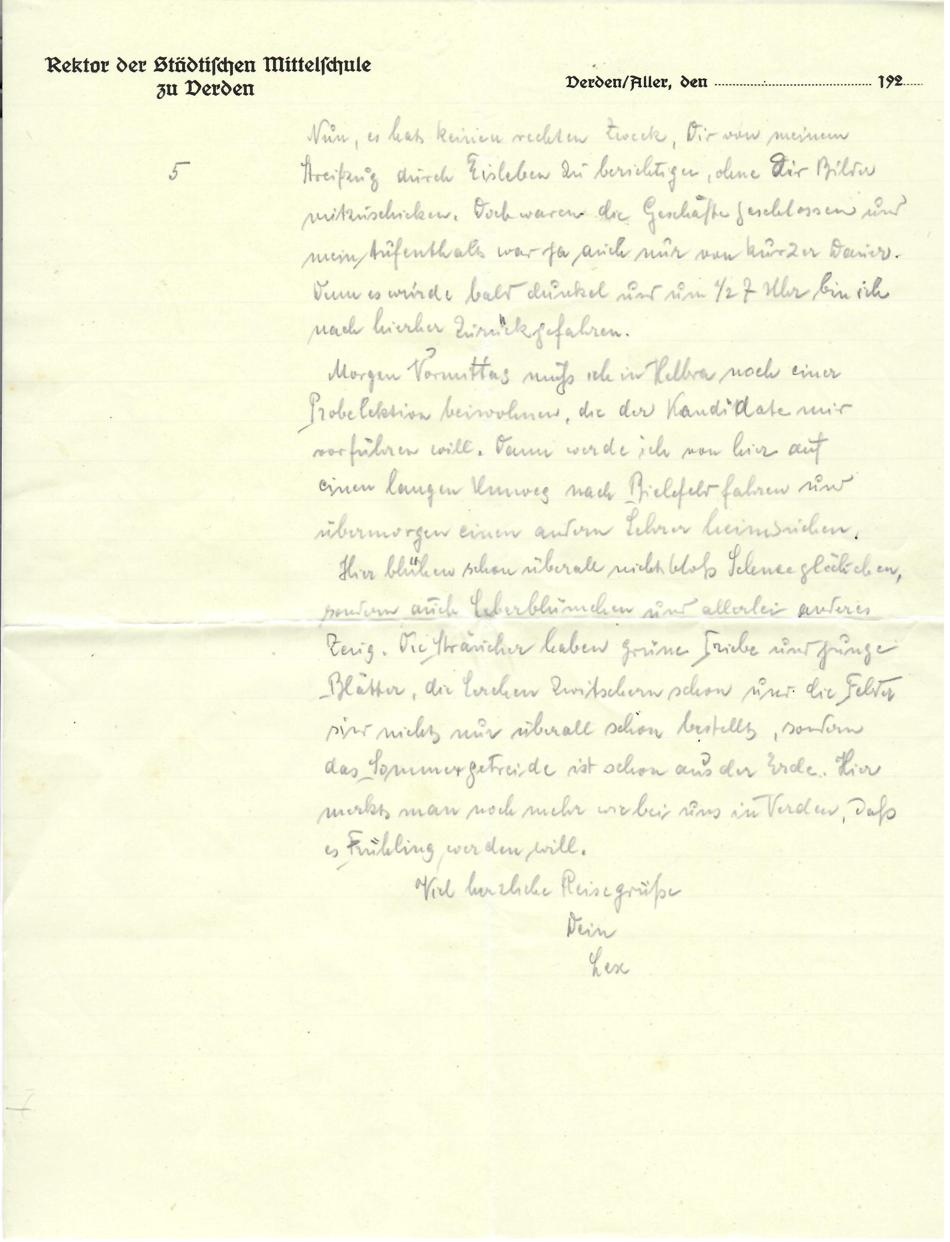 Rektor der Städtischen Mittelschule
zu Verden
Verden/Aller, den ........................ 192.....
5
Nun, es hat keinen rechten Zweck, Dir von meinem
Streifzug durch Eisleben zu berichtigen, ohne Dir Bilder
mitzuschicken. Doch waren die Geschäfte geschlossen und
mein Aufenthalt war ja auch nur von kurzer Dauer.
Denn es wurde bald dunkel und um 1/2 7 Uhr bin ich
nach hierher zurückgefahren.
Morgen Vormittag muß ich in Helbra noch einer
Probelektion beiwohnen, die der Kandidat mir
vorführen will. Dann werde ich von hier auf
einen langen Umweg nach Bielefeld fahren und
übermorgen einen andern Lehrer heimsuchen.
Hier blühen schon überall nicht bloß Schneeglöckchen,
sondern auch Leberblümchen und allerlei anderes
Zeug. Die Sträucher haben grüne Triebe und junge
Blätter, die Lerchen zwitschern schon und die Felder
sind nicht nur überall schon bestellt, sondern
das Sommergetreide ist schon aus der Erde. Hier
merkt man noch mehr wie bei uns in Verden, daß
es Frühling werden will.
Viel herzliche Reisegrüße
Dein
Lex